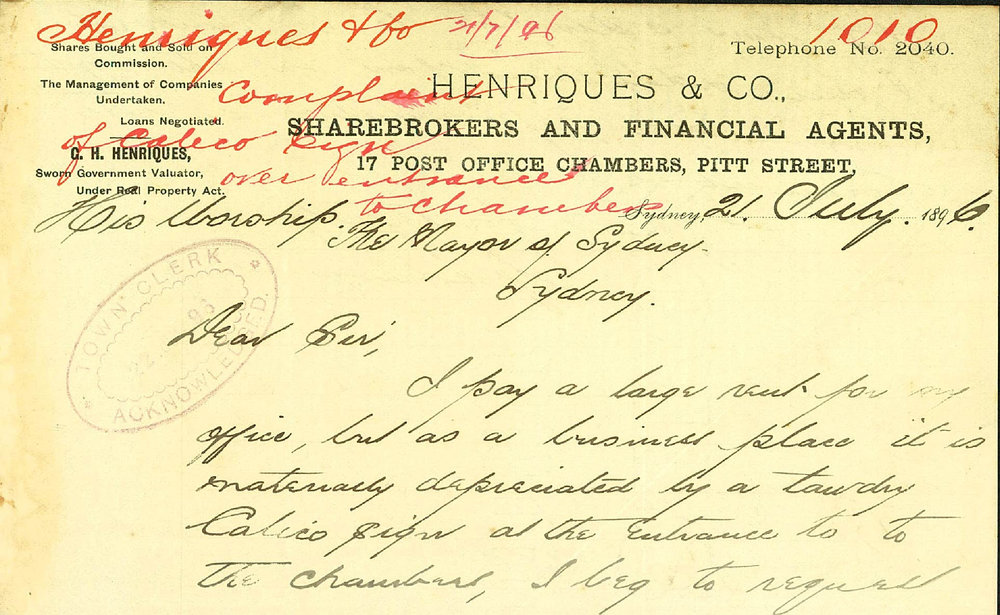 Henriques & Co 21/7/96 1010
Shares Bought and Sold on
Commission.
The Management of Companies
Undertaken.
Loans Negotiated.
G. H. HENRIQUES,
Sworn Government Valuator,
Under Real Property Act.
Telephone No. 2040.
HENRIQUES & CO.,
SHAREBROKERS AND FINANCIAL AGENTS,
17 POST OFFICE CHAMBERS, PITT STREET,
Complaint
of Calico Sign
over entrance
to Chambers
Sydney, 21. July. 1896.
His Worship.
The Mayor of Sydney.
Sydney.
TOWN CLERK
22 96
ACKNOWLEDGED.
Dear Sir,
I pay a large rent for my
office, but as a business place it is
materially depreciated by a tawdry
Calico sign at the entrance to to
the chambers, I beg to request